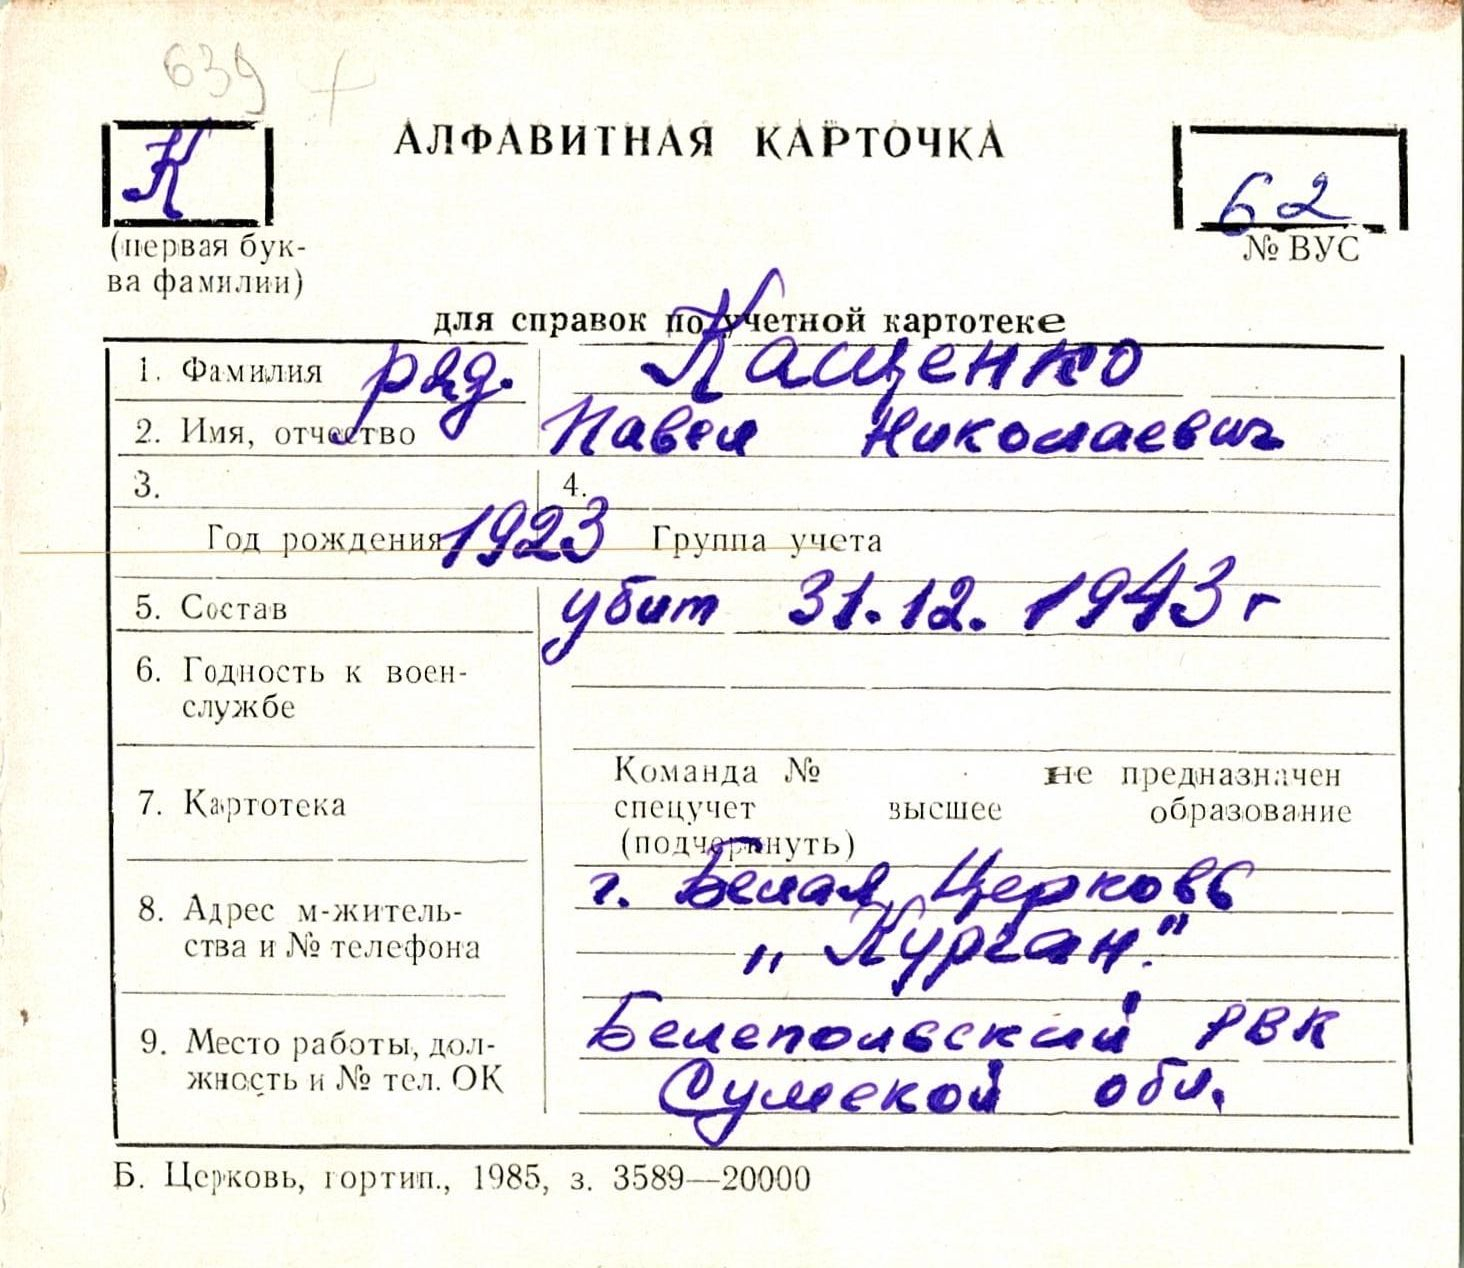 639 +
К
АЛФАВИТНАЯ КАРТОЧКА
62
(первая бук-
ва фамилии)
№ ВУС
для справок по учетной картотеке
1. Фамилия ряд. Кащенко
2. Имя, отчество Павел Николаевич
3. 4.
Год рождения 1923 Группа учета
5. Состав убит 31.12.1943 г
6. Годность к воен-
службе
7. Картотека
Команда № не предназначен
спецучет высшее образование
(подчеркнуть)
8. Адрес м-житель-
ства и № телефона
г. Белая Церковь
„Курган."
9. Место работы, дол-
жность и № тел. ОК
Белепольский РВК
Сумской обл.
Б. Церковь, гортип., 1985, з. 3589—20000